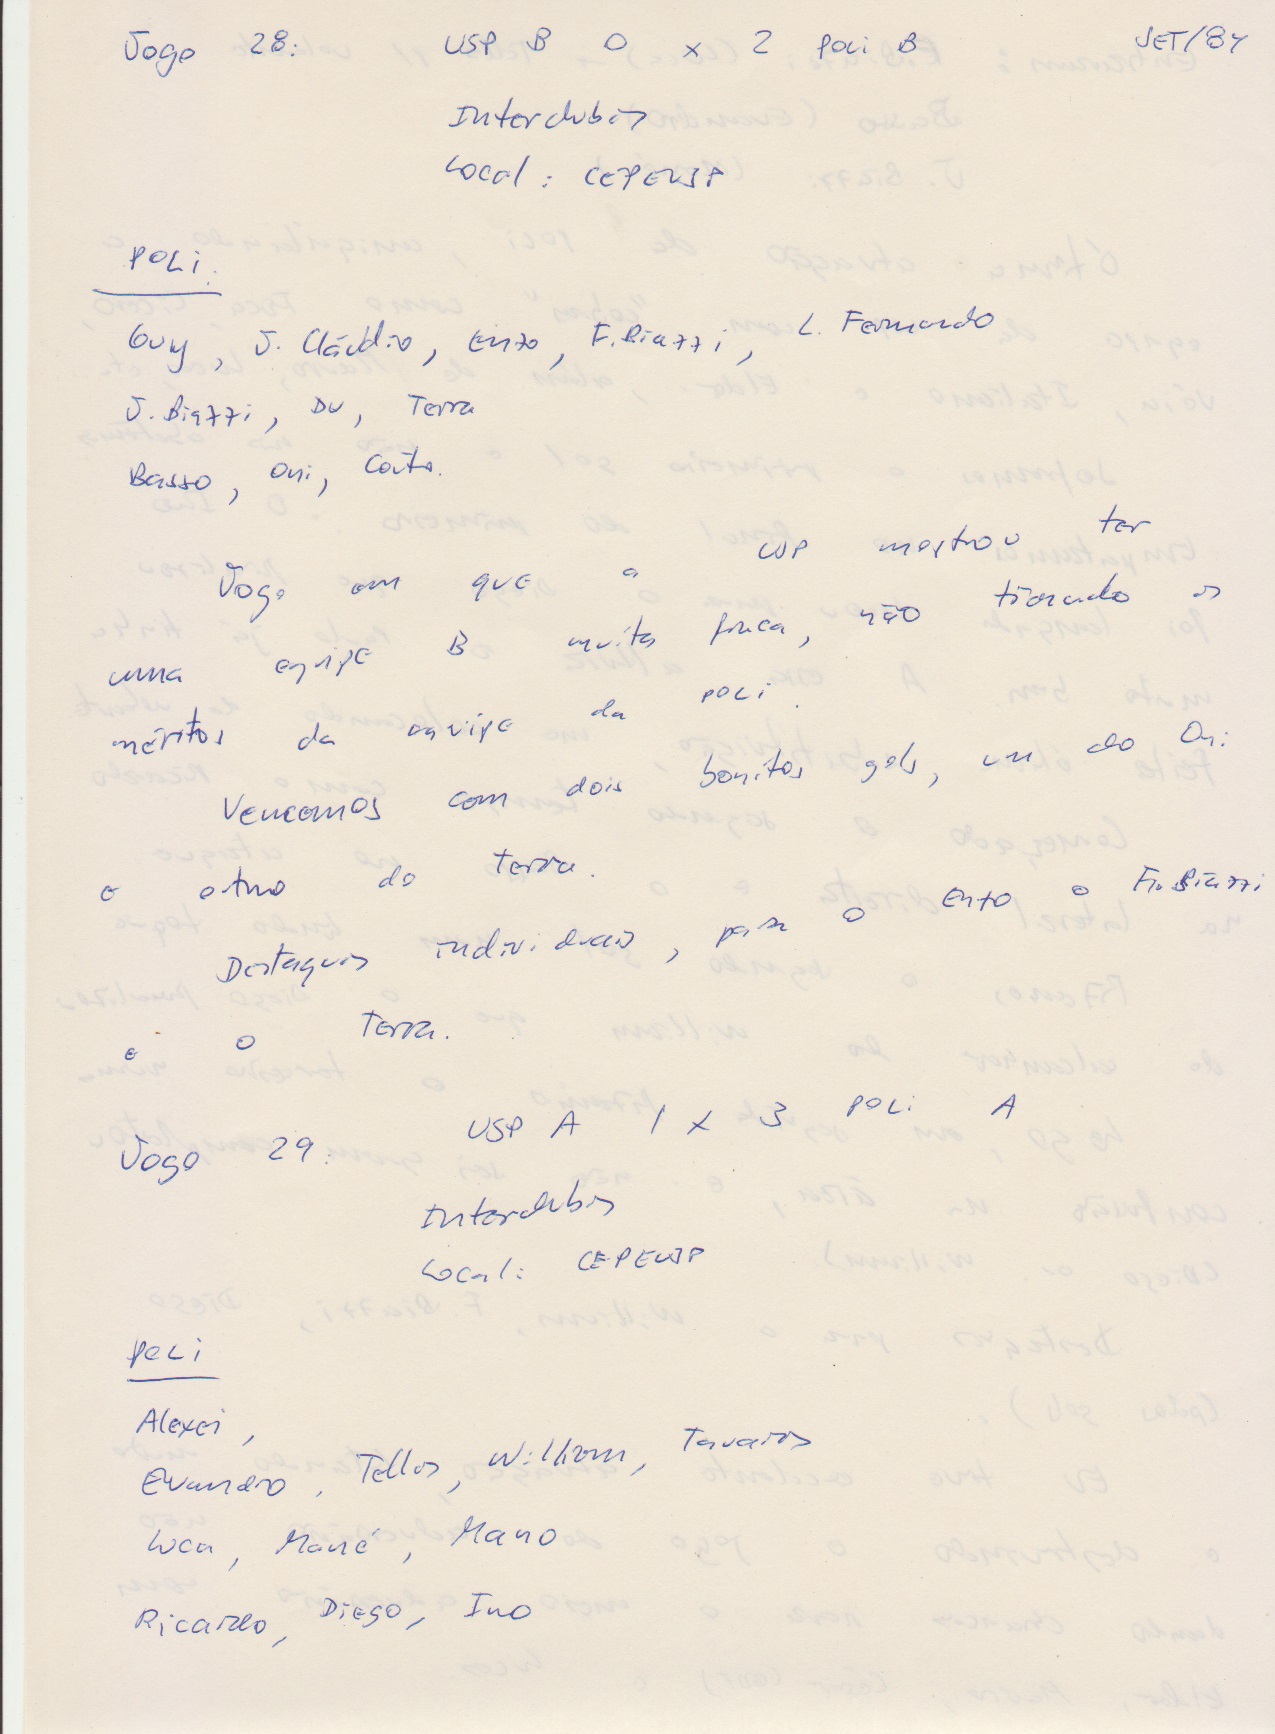 Jogo 28: USP B 0 x 2 POLI B SET/84
Interclubes
Local: CEPEUSP
POLI.
Guy, J. Cláudio, Enzo, F. Biazzi, L. Fernando
J. Biazzi, Du, Terra
Basso, Oni, Couto.
Jogo em que a USP mostrou ter
uma equipe B muito fraca, não tirando os
méritos da equipe da POLI.
Vencemos com dois bonitos gols, um do Oni
e outro do Terra.
Destaques individuais, para o Enzo o F. Biazzi
e o Terra.
Jogo 29: USP A 1 x 3 POLI A
Interclubes
Local: CEPEUSP
POLI
Alexei,
Evandro, Telles, William, Tavares
Luca, Mané, Mano
Ricardo, Diego, Ino